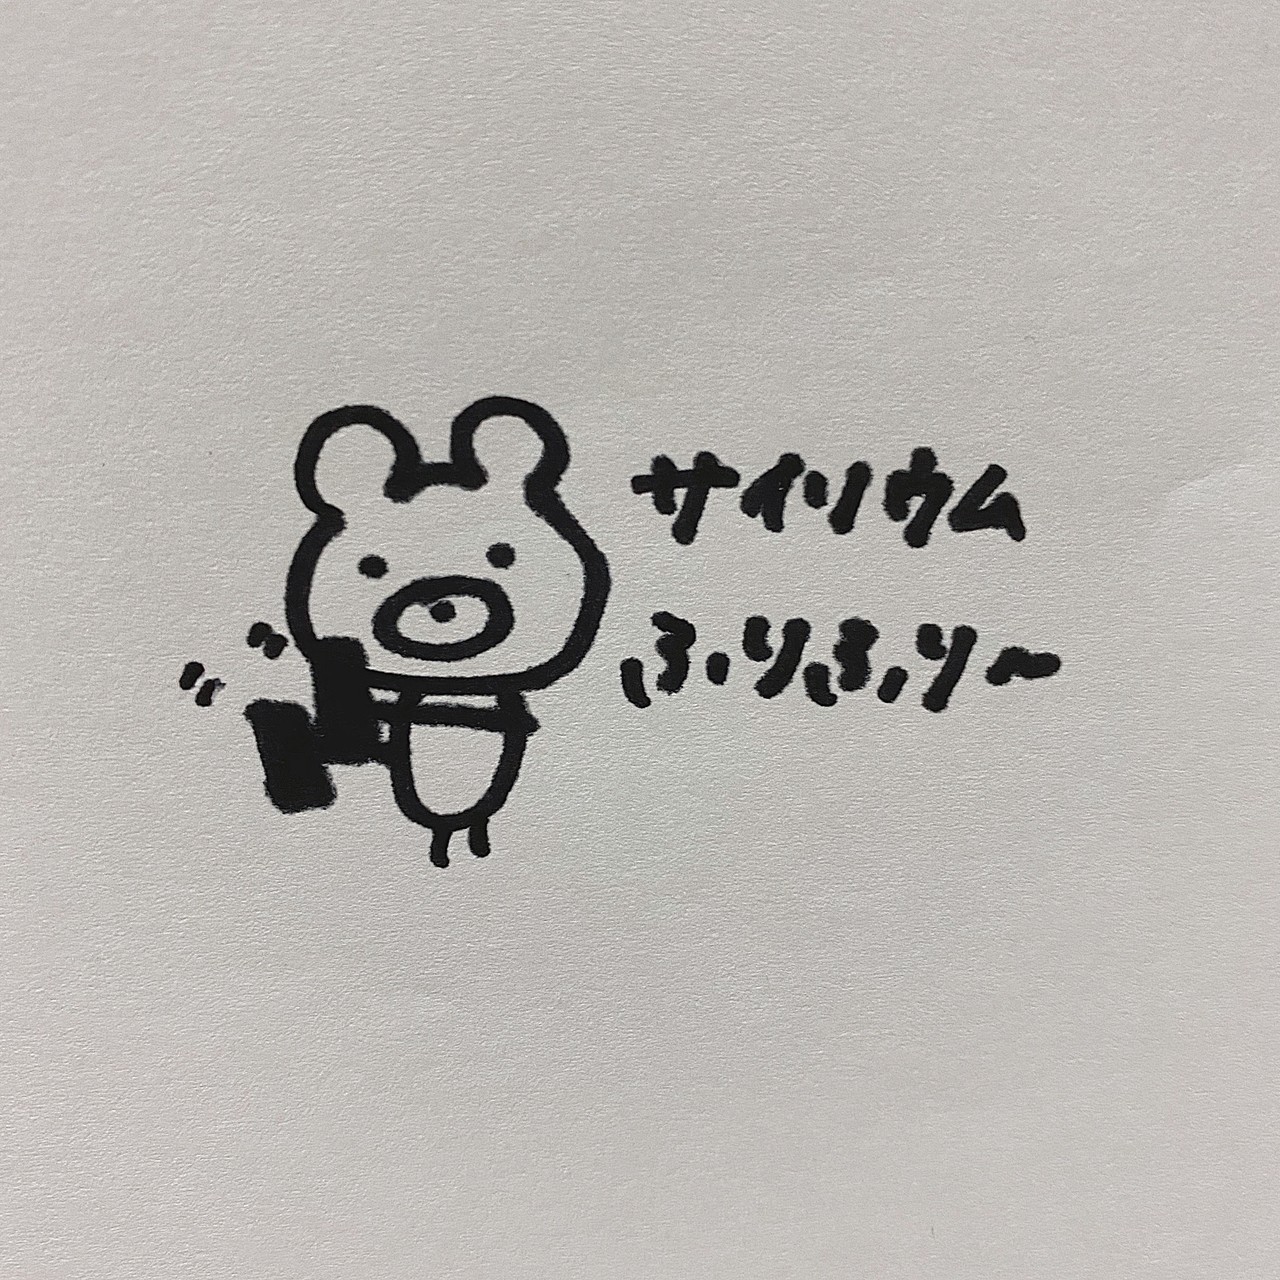 サイリウム
ふりふり〜